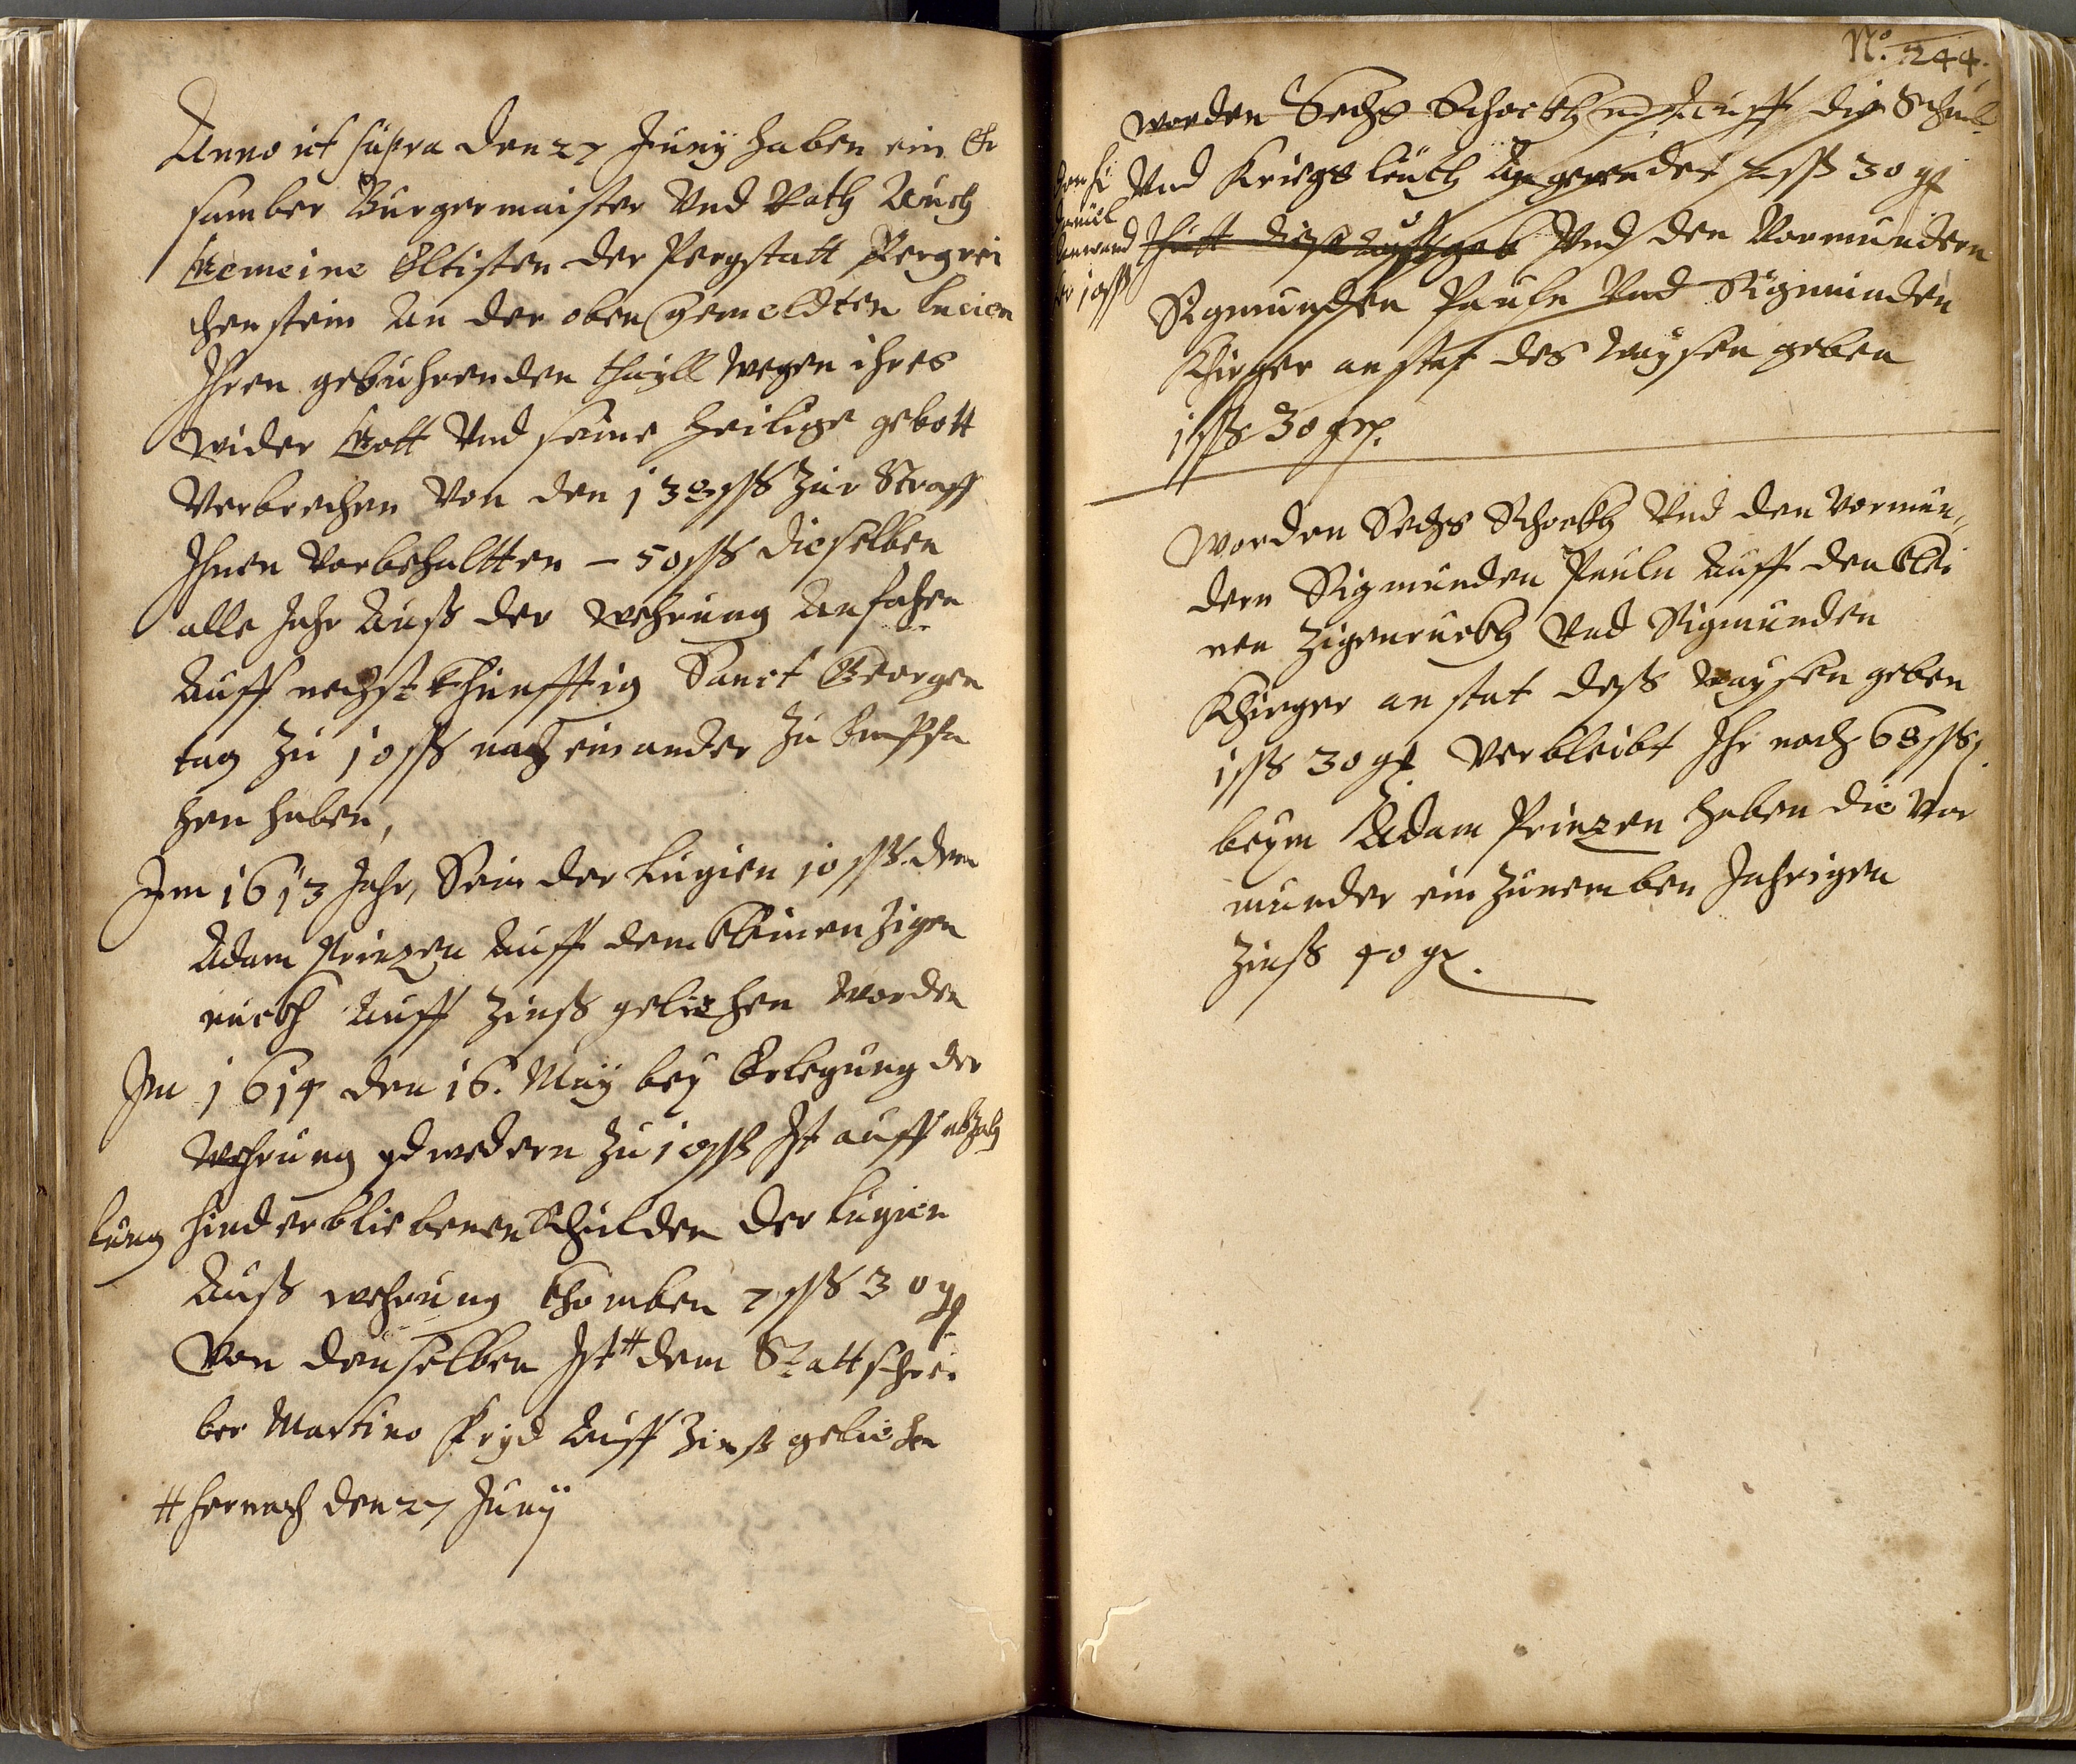 Anno ut supra den 27 Juny haben ein Er
samber Burgermaister Vnd Rath Auch
Gemeine Eltisten der Pergstatt Pergrei
chenstein An der oben gemeldten Lucien
Ihren gebuhrenden thayll wegen ihres
wider Gott Vnd seine heilige gebott
Verbrechen Von den 138 ßß zur Straff
Ihnen Vorbehaltten – 50 ßß dieselben
alle Jahr Auß der wehrung Anfahen
Auff nechst khunfftig Sanct Georgen
tag zu 10 ßß nach einander zu Empfa
hen haben,
Im 1613 Jahr, Sein der Lugien 10 ßß dem
Adam Prinzen Auff dem kleinen Zigen
ruckh Auff Zinß geliehen worden
Im 1614 den 16. May bey Erlegung der
Wehrung zu 10 ßß Ist auff abzah
lung hinderbliebenen Schulden der Lugien
Auß wehrung khomben 7 ßß 30 gl
Von denselben Ist # dem Stattschrei
ber Martino Auff Zinß geliehen
# hernach den 27 Juny
No. 244.
worden Sechs Schockh auff die Schuel
Vnd Kriegsleuth ßß 30 gl
Vnd den Vormundern
Sigmunden Pauln Vnd Sigmunden
Khirger anstat des Waysen geben
1 ßß 30 gl.
worden Sechs Schockh Vnd den Vormun„
dern Sigmunden Pauln Auff den klei
nen Zigenruckh Vnd Sigmunden
Khirger anstat deß Waysen geben
1 ßß 30 gl Verbleibt Ihr noch 68 ßß.
beym Adam Prinzen haben die Vor
munder einzunemben Jahrigen
Zinß 40 gl.